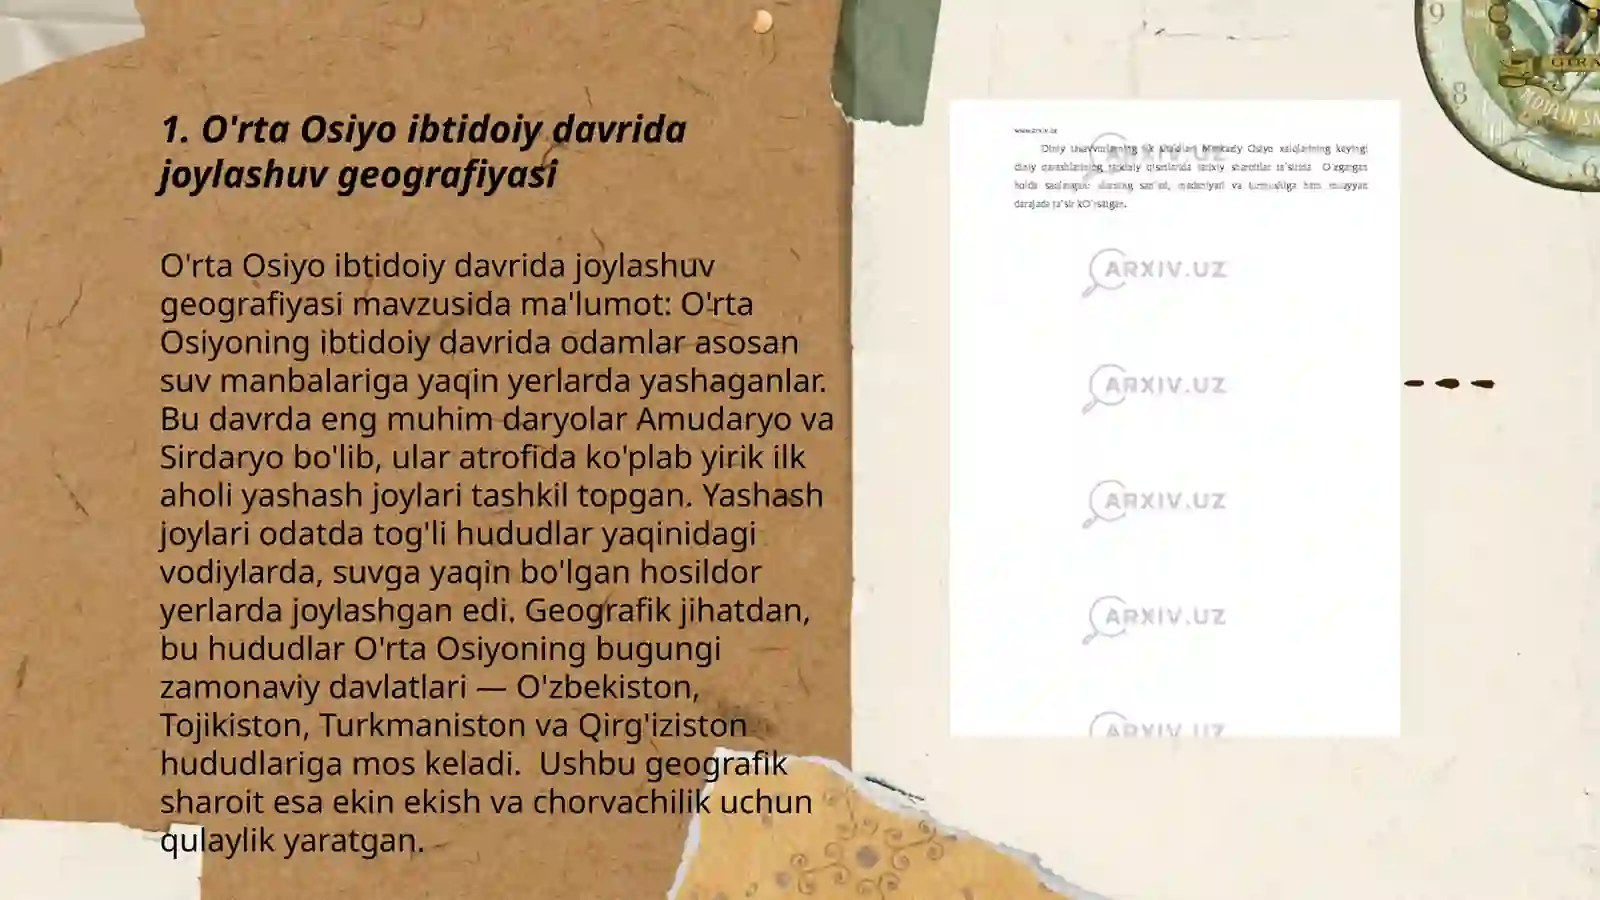 1. O'rta Osiyo ibtidoiy davrida
joylashuv geografiyasi
O'rta Osiyo ibtidoiy davrida joylashuv
geografiyasi mavzusida ma'lumot: O'rta
Osiyoning ibtidoiy davrida odamlar asosan
suv manbalariga yaqin yerlarda yashaganlar.
Bu davrda eng muhim daryolar Amudaryo va
Sirdaryo bo'lib, ular atrofida ko'plab yirik ilk
aholi yashash joylari tashkil topgan. Yashash
joylari odatda tog'li hududlar yaqinidagi
vodiylarda, suvga yaqin bo'lgan hosildor
yerlarda joylashgan edi. Geografik jihatdan,
bu hududlar O'rta Osiyoning bugungi
zamonaviy davlatlari — O'zbekiston,
Tojikiston, Turkmaniston va Qirg'iziston
hududlariga mos keladi. Ushbu geografik
sharoit esa ekin ekish va chorvachilik uchun
qulaylik yaratgan.
www.arxiv.uz
Diniy Osiyo xalqlarining keyingi
diniy tarixiy sharoitlar ta'sirida O'zgargan
holda va turmushiga ham muayyan
darajada ta'sir kO'rsatgan.
ARXIV.UZ
ARXIV.UZ
ARXIV.UZ
ARXIV.UZ
ARXIV.UZ
ARXIV.UZ
9
8
6